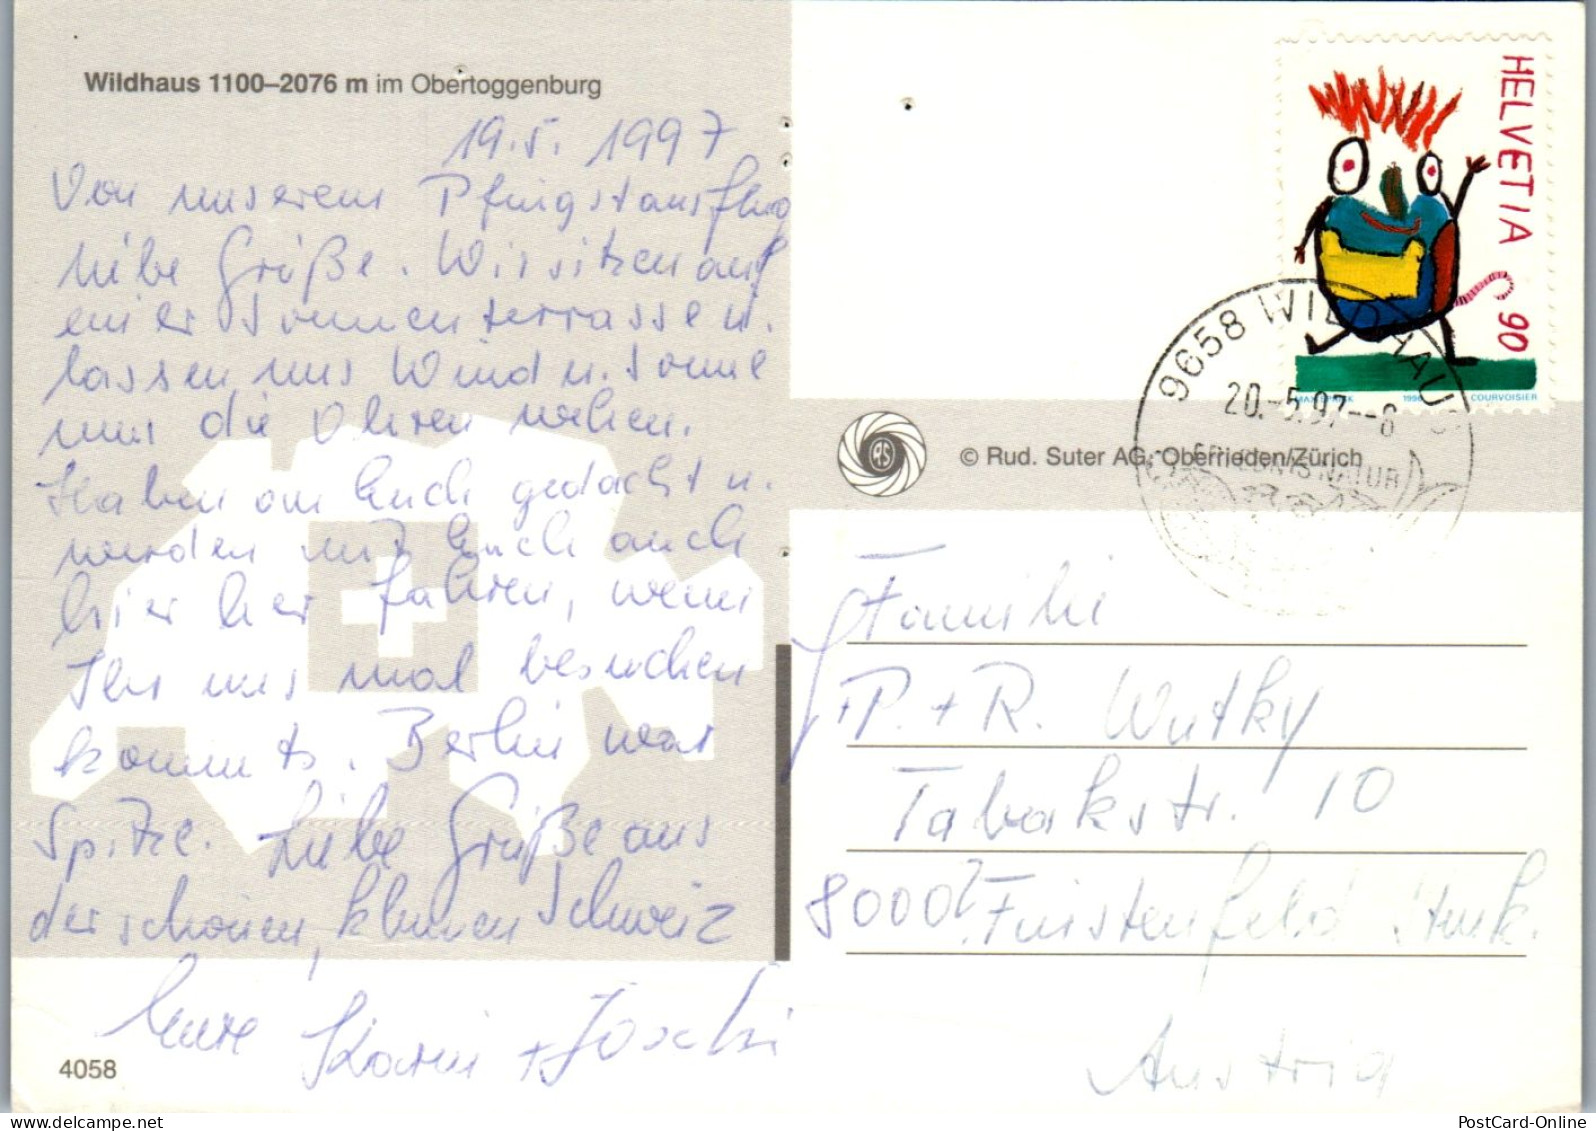 Wildhaus 1100–2076 m im Obertoggenburg
19.5. 1997
Von unserem Pfingstausflug
liebe Grüße. Wir sitzen auf
einer Sonnenterrasse u.
lassen uns Wind u. Sonne
um die Ohren wehen.
Haben an Euch gedacht u.
werden mit Euch auch
hier her fahren, wenn
Ihr uns mal besuchen
kommts. Berlin war
Spitze. Liebe Grüße aus
der schönen, kleinen Schweiz
Eure Karin + Joschi
4058
HELVETIA
90
1996
COURVOISIER
9658 WILDHAUS
20.-5.97--8
© Rud. Suter AG, Oberrieden/Zürich
Familie
P. + R. Wutky
Tabakstr. 10
Fürstenfeld Stmk.
Austria
PostCard-Online